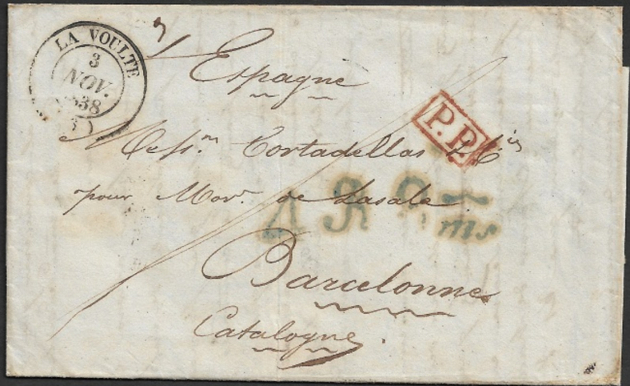 LA VOULTE
3
NOV.
1838
Espagne
P.P.
Messrs Tortadellas & Cie
pour Mor. de Lasale
4 R
ms
Barcelonne
Catalogne